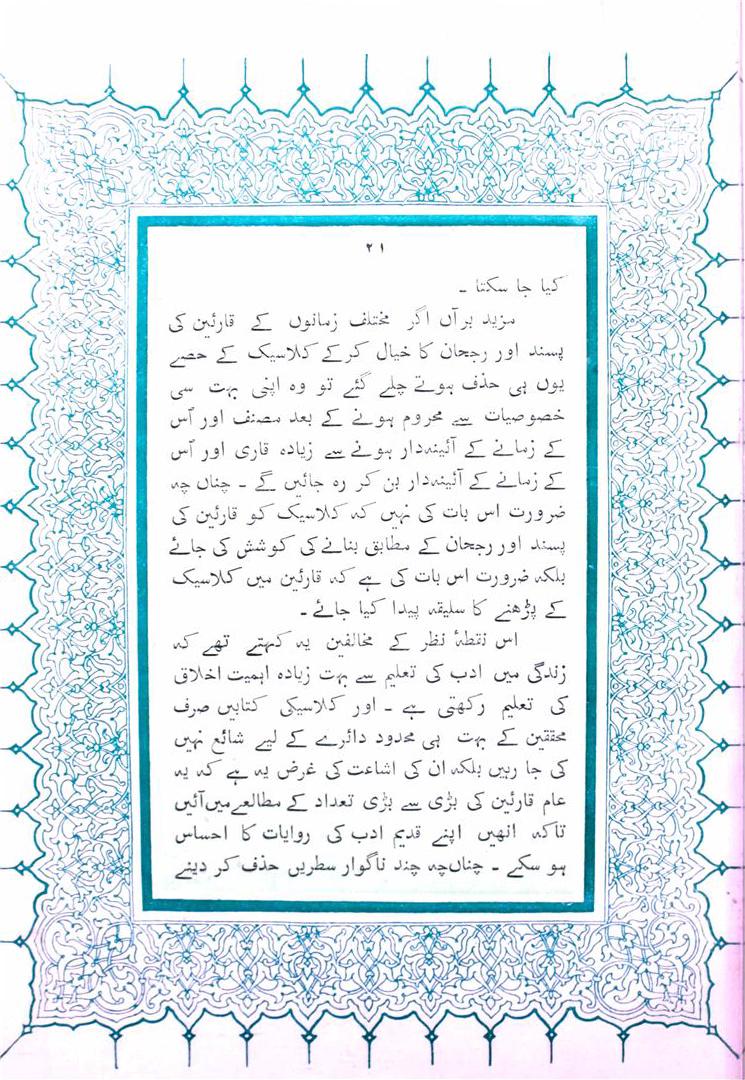 ۲۱
کیا جا سکتا ۔
مزید برآں اگر مختلف زمانوں کے قارئین کی
پسند اور رجحان کا خیال کرکے کلاسیک کے حصے
یوں ہی حذف ہوتے چلے گئے تو وہ اپنی بہت سی
خصوصیات سے محروم ہونے کے بعد مصنف اور اُس
کے زمانے کے آئینہدار ہونے سے زیادہ قاری اور اُس
کے زمانے کے آئینہدار بن کر رہ جائیں گے ۔ چناں چہ
ضرورت اس بات کی نہیں کہ کلاسیک کو قارئین کی
پسند اور رجحان کے مطابق بنانے کی کوشش کی جائے
بلکہ ضرورت اس بات کی ہے کہ قارئین میں کلاسیک
کے پڑھنے کا سلیقہ پیدا کیا جائے ۔
اس نقطۂ نظر کے مخالفین یہ کہتے تھے کہ
زندگی میں ادب کی تعلیم سے بہت زیادہ اہمیت اخلاق
کی تعلیم رکھتی ہے ۔ اور کلاسیکی کتابیں صرف
محققین کے بہت ہی محدود دائرے کے لیے شائع نہیں
کی جا رہیں بلکہ ان کی اشاعت کی غرض یہ ہے کہ یہ
عام قارئین کی بڑی سے بڑی تعداد کے مطالعے میں آئیں
تاکہ انھیں اپنے قدیم ادب کی روایات کا احساس
ہو سکے ۔ چناںچہ چند ناگوار سطریں حذف کر دینے